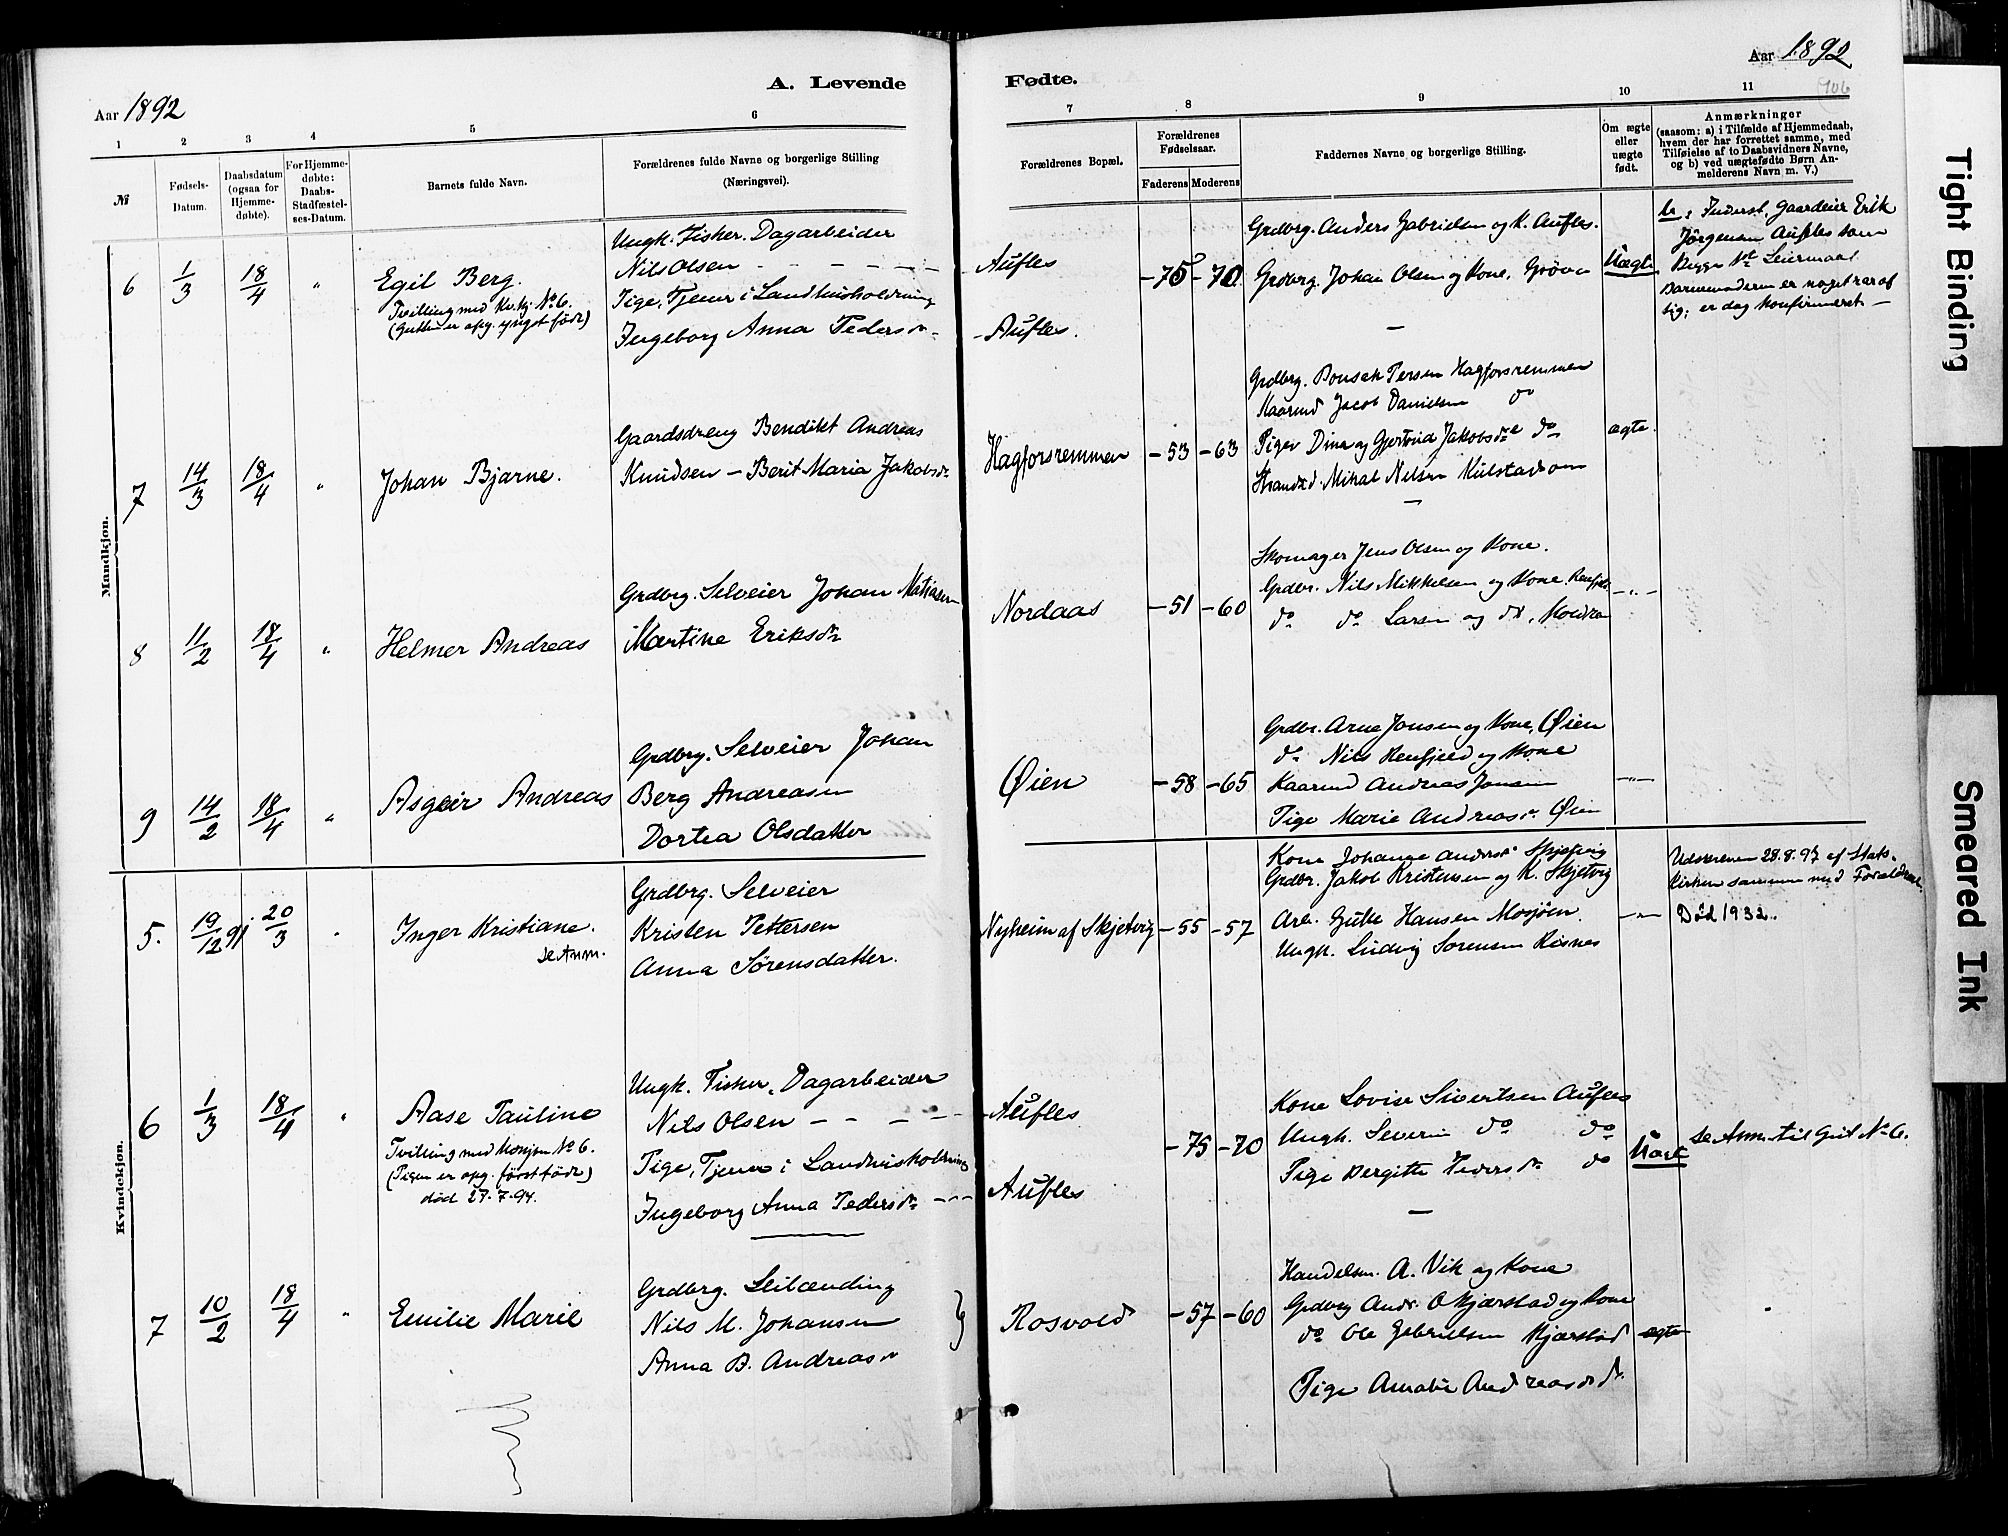 A. Levende
Aar 1892
1 2 3 4 5 6
№
Fødsels-Datum.
Daabsdatum (ogsaa for Hjemme-døbte).
For Hjemme-døbte: Daabs-Stadfæstel-ses-Datum.
Barnets fulde Navn.
Forældrenes fulde Navne og borgerlige Stilling (Næringsvei).
Fødte.
Aar 1892
7 8 9 10 11
Forældrenes Bopæl.
Forældrenes Fødselsaar.
Faderens Moderens
Faddernes Navne og borgerlige Stilling.
Om ægte eller uægte født.
Anmærkninger
(saasom: a) i Tilfælde af Hjemmedaab,
hvem der har forrettet samme, med
Tilføielse af to Daabsvidners Navne,
og b) ved uægtefødte Børn An-
melderens Navn m. V.)
Mandkjøn.
6 1/3 18/4 " Egil Berg.
Tvilling med Kv.kj. No 6.
(Gutten er opg. yngst født)
Ungk. Fisker. Dagarbeider
Nils Olsen - - - - -
Pige, Tjener i Landhusholdning
Ingeborg Anna Pedersdr
Aufles
Aufles.
-75 -70
Grdbrg. Anders Gabrielsen og K. Aufles.
Grdbrg. Johan Olsen og Kone, Grøva
Uægte
Inderst. Gaardeier Erik
Jörgensen Aufles som
Barnemoderen er noget rar af
sig; er dog konfirmeret -
7 14/3 18/4 " Johan Bjarne.
Gaardsdreng Bendikt Andreas
Knudsen - Berit Maria Jakobsdr
Hagforsremmen
-53 -63
Grdbrg. Bonsak Persen Hagforsremmen
Kaarmd Jacob Danielsen do
Piger Dina og Gjertrud Jakobsdr do
Strandsd. Mikal Nilsen Kulstadsøen
ægte.
8 11/2 18/4 " Helmer Andreas
Grdbrg. Selveier Johan Matiasen
Martine Eriksdr
Nordaas
-51 -60
Skomager Jens Olsen og Kone.
Grdbr. Nils Mikkelsen og Kone, Renfjeld
do do Larsen og do, Moldren
-"-
9 14/2 18/4 " Asgeir Andreas
Grdbrg. Selveier Johan
Berg Andreasen
Dortea Olsdatter
Øien
-58 -65
Grdbr. Arne Jonsen og Kone, Øien
do Nils Renfjeld og Kone
Kaarmd Andreas Jonsen
Pige Marie Andreasdr Øien
-"-
Kvindekjøn.
5. 19/12 91 20/3 " Inger Kristiane.
se Anm.
Grdbrg. Selveier
Kristen Pettersen
Anna Sørensdatter.
Nyheim af Skjetvig
-55 -57
Kone Johanna Andersdr Skjetvig
Grdbr. Jakob Kristensen og K. Skjetvig
Arb. Gutte Hansen Mosjøen.
Ungk. Ludvig Sorensen Risnes
-"-
Udskreven 28.8.97 af Stats-
kirken sammen med Forældrene.
Död 1932.
6 1/3 18/4 " Aase Pauline
Tvilling med Mankjøn No 6.
(Pigen er opg. först född)
död 27.7.94.
Ungk. Fisker, Dagarbeider
Nils Olsen - - - -
Pige, Tjener i Landhusholdning
Ingeborg Anna Pedersdr ---
Aufles
Aufles
-75 -70
Kone Lovise Sivertsen Aufles
Ungk. Severin do do
Pige Bergitte Pedersdr do
Uægte
se Anm. til Gut No 6.
7 10/2 18/4 " Emilie Marie
Grdbrg. Leilænding
Nils M. Johansen
Anna B. Andreasdr
Rosvold
-57 -60
Handelsm. A. Vik og Kone
Grdbrg Andr. O Kjærstad og Kone
do Ole Gabrielsen Kjærstad
Pige Amalie Andreasdr
ægte
Tight Binding
Smeared Ink